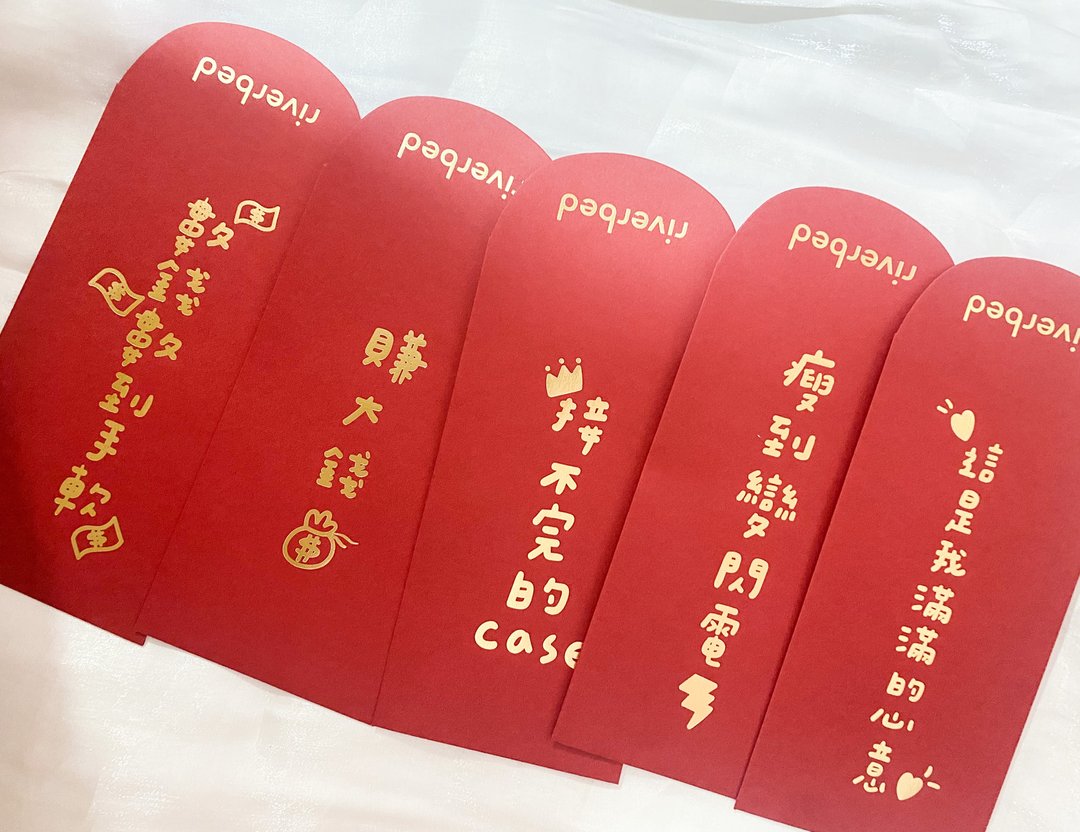 riverbed
數錢數到手軟
riverbed
賺大錢
riverbed
接不完的
case
riverbed
瘦到變閃電
riverbed
這是我滿滿的心意